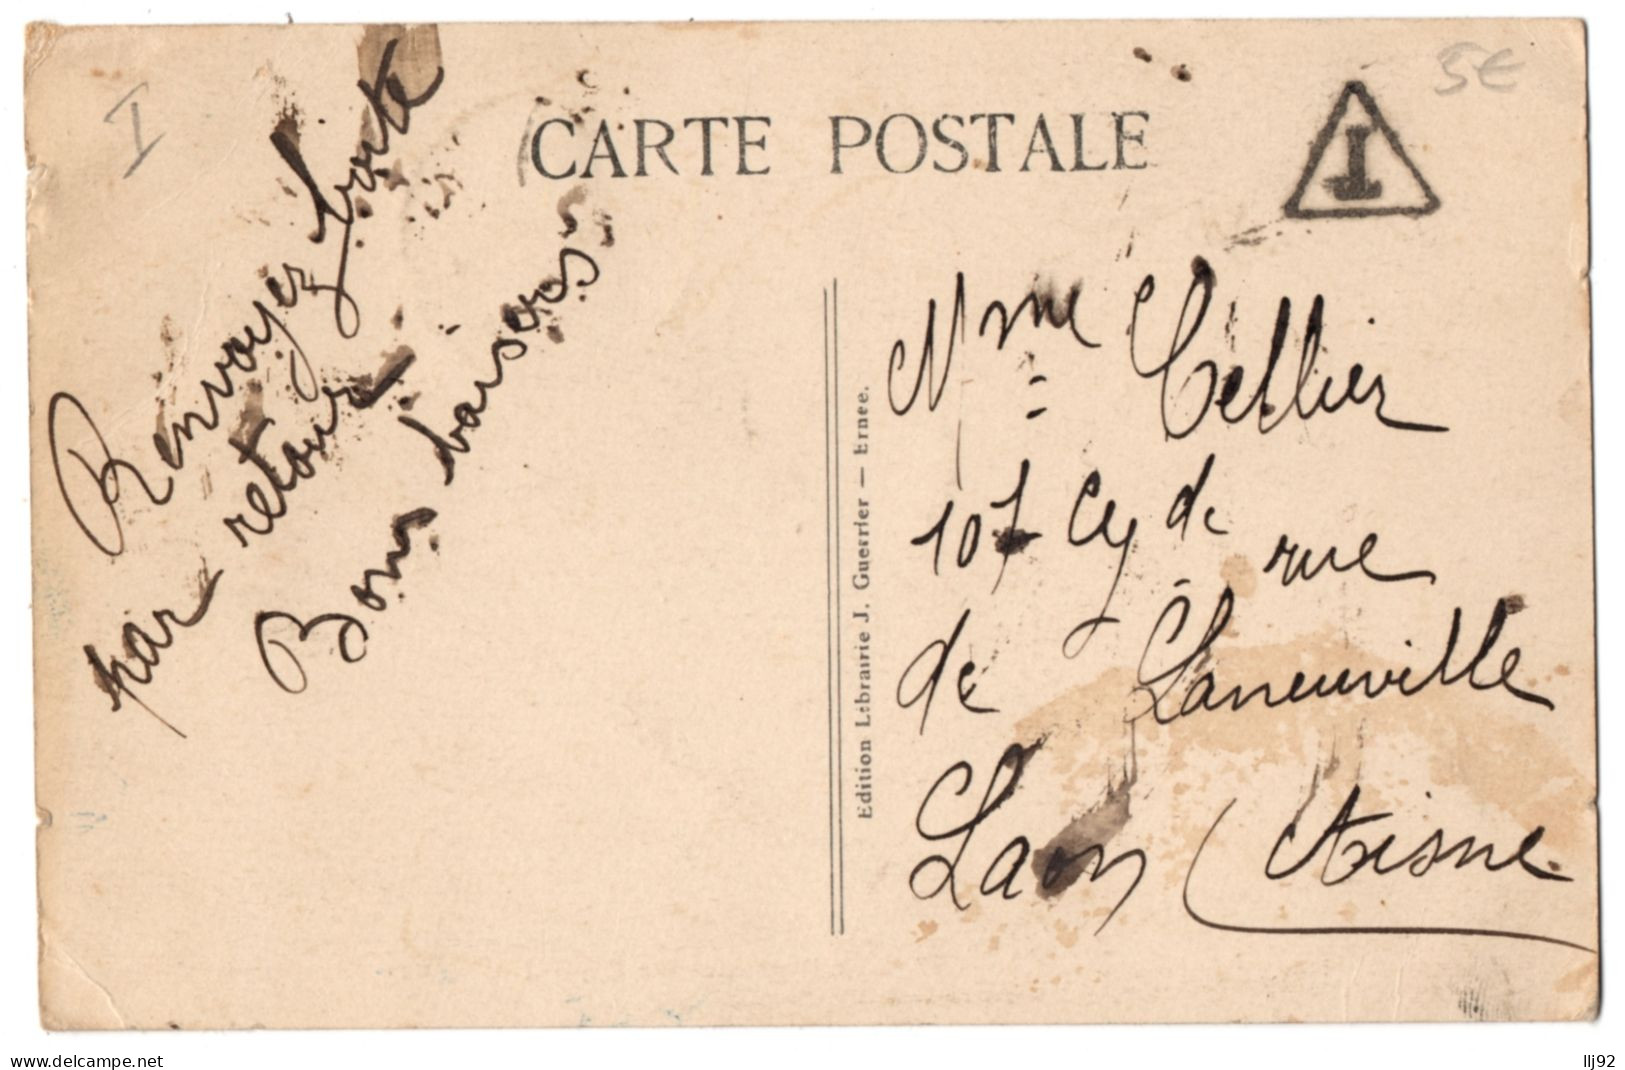 I
5€
CARTE POSTALE
T
Renvoyez boite
par retour
Bons baisers
Edition Librairie J. Guerrier — Ernee.
Mme Cellier
107 de rue
de Laneuville
Laon (Aisne
www.delcampe.net
llj92